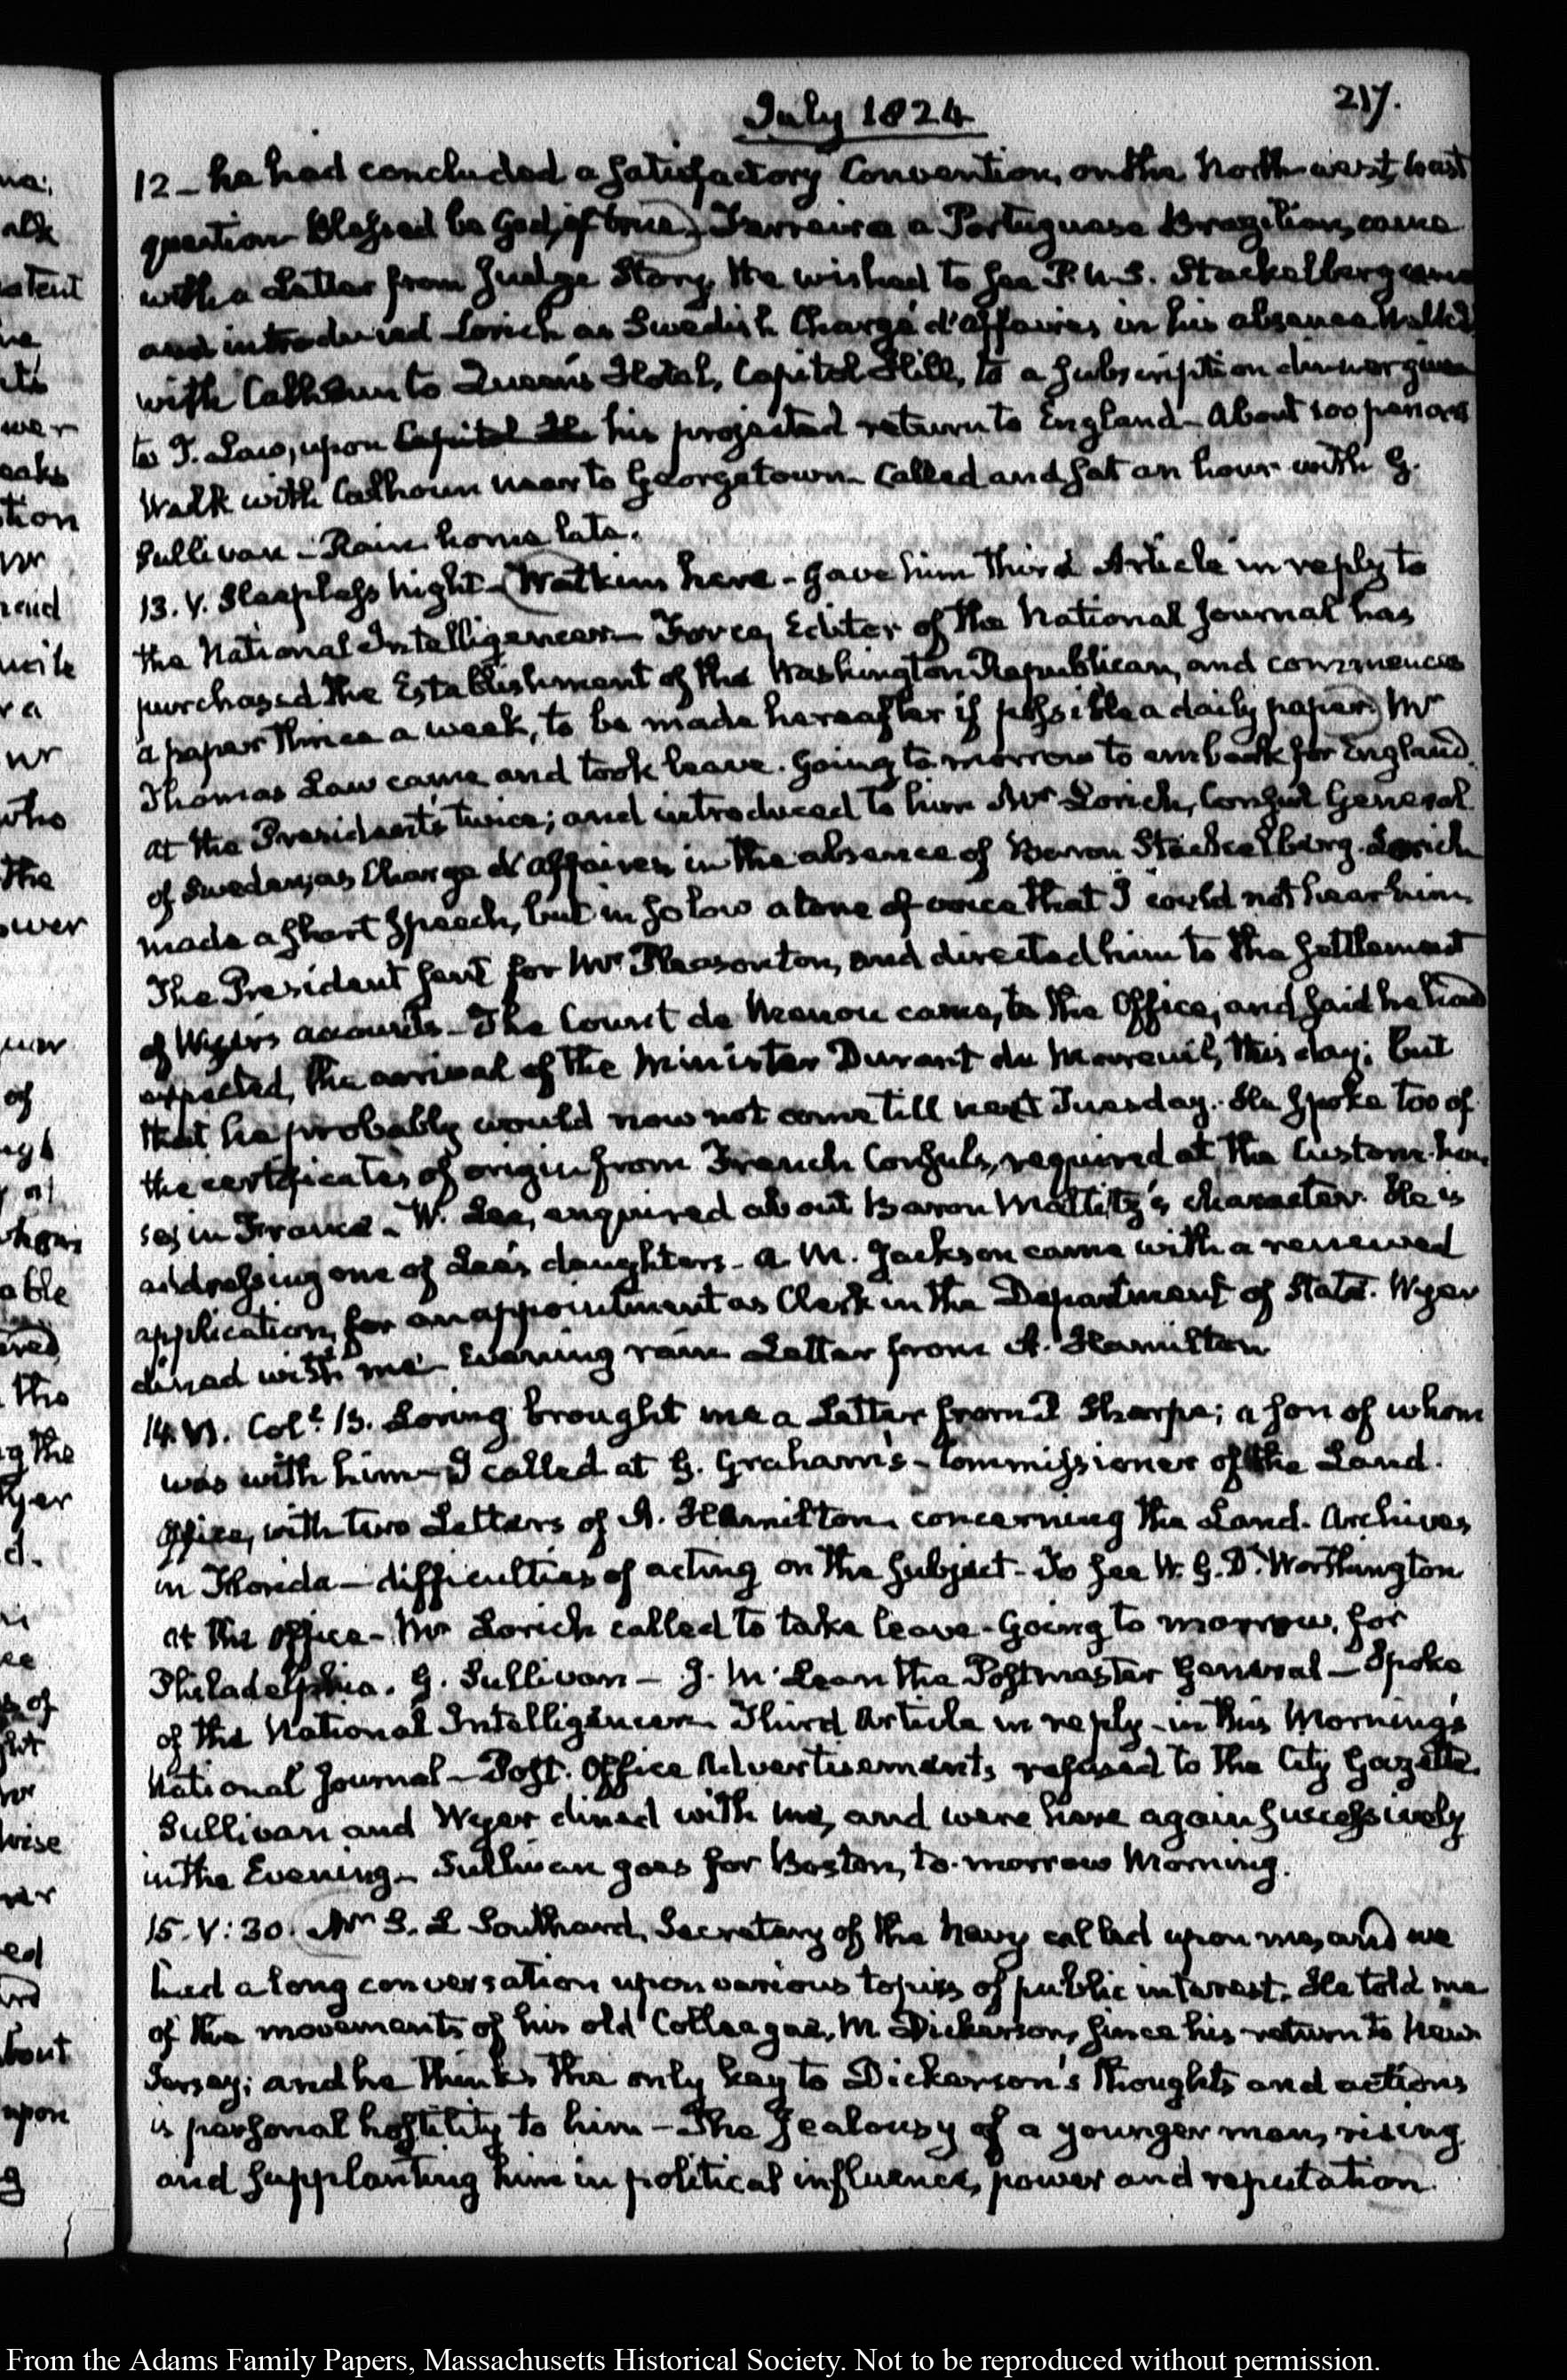 217.
July 1824
12 - he had concluded a satisfactory Convention, on the North-west, Coast
question - Blessed be God, if true.) Ferreira a Portuguese Brazilian, came
with a Letter from Judge Story, He wished to see P.U.S. Stackelberg came
and introduced Lorich as Swedish Chargé d'affaires in his absence. Walk'd
with Calhoun to Queen's Hotel, Capitol Hill, to a subscription dinner given
to T. Law, upon Capitol Hi his projected return to England - About 100 persons
Walk with Calhoun near to Georgetown - Called and sat an hour with G.
Sullivan - Rain. home late.
13. V. Sleepless night - (Watkins here - gave him third Article in reply to
the National Intelligencer - Force, Editor of the National Journal has
purchased the Establishment of the Washington Republican, and commences
a paper thrice a week, to be made hereafter if possible a daily paper) Mr
Thomas Law came and took leave. Going to-morrow to embark for England.
At the President's twice; and introduced to him Mr Lorich, Consul General
of Sweden, as Charge d'Affaires in the absence of Baron Stackelberg. Lorich
made a short Speech, but in so low a tone of voice that I could not hear him.
The President sent for Mr Pleasonton, and directed him to the settlement
of Wyer's accounts - The Count de Menou came, to the Office, and said he had
expected, the arrival of the Minister Durant de Mareuil, this day; but
that he probably would now not come till next Tuesday. He spoke too of
the certificates of origin from French Consuls, required at the Custom-hou
ses in France - W. Lee, enquired about Baron Maltitz's character. He is
addressing one of Lee's daughters - a M. Jackson came with a renewed
application, for an appointment as Clerk in the Department of State. Wyer
dined with me. Evening rain Letter from A. Hamilton
14. VI. Colt. B. Loring brought me a Letter from P Sharpe; a son of whom
was with him - I called at G. Graham's - Commissioner of the Land.
Office, with two Letters of A. Hamilton concerning the Land. Archives
in Florida - difficulties of acting on the subject - To see W. G. D. Worthington
at the Office - Mr Lorich called to take leave - Going to morrow, for
Philadelphia. G. Sullivan - J. McLean the Postmaster General - Spoke
of the National Intelligencer. Third Article in reply - in this Morning's
National Journal - Post. Office Advertisements refused to the City Gazette.
Sullivan and Wyer dined with me, and were here again successively
in the Evening - Sullivan goes for Boston, to-morrow Morning.
15. V:30. Mr S. L Southard, Secretary of the Navy called upon me, and we
had a long conversation upon various topics of public interest. He told me
of the movements of his old Colleague, M Dickerson, since his return to New
Jersey; and he thinks the only key to Dickerson's thoughts and actions
is personal hostility to him - The Jealousy of a younger man, rising
and supplanting him in political influence, power and reputation.
From the Adams Family Papers, Massachusetts Historical Society. Not to be reproduced without permission.